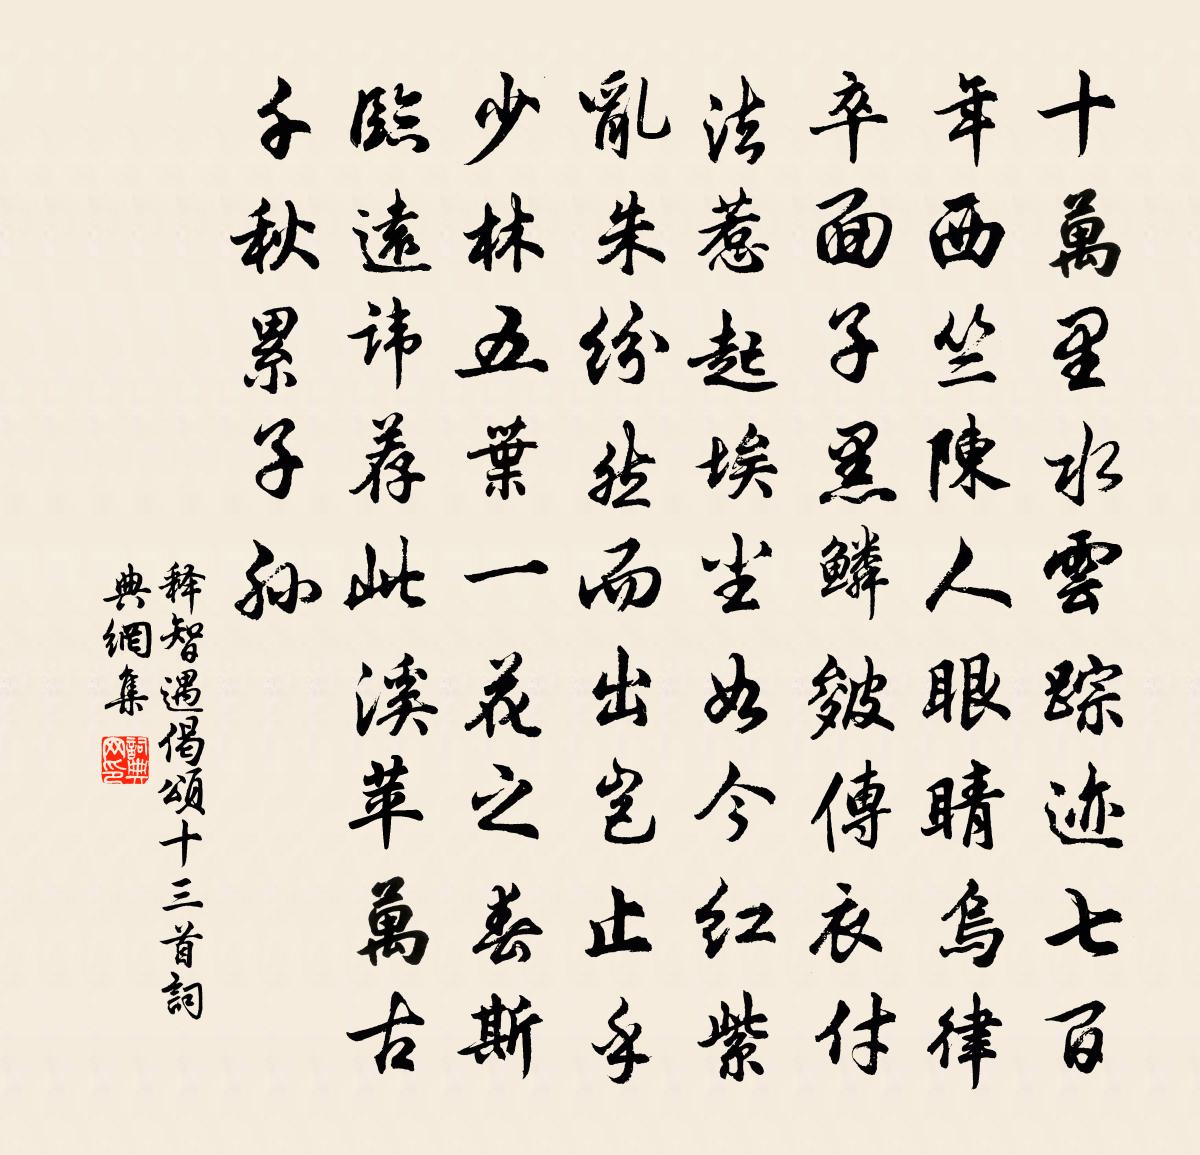 十萬里水雲踪迹七百
年西竺陳人眼睛烏律
卒面子黑鱗皴傳衣付
法惹起埃坐如今紅紫
亂朱紛然而出豈止乎
少林五葉一花之春斯
臨遠諱荐此溪苹萬古
千秋累子孙
释智遇偈頌十三首詞
典網集
詞典网印